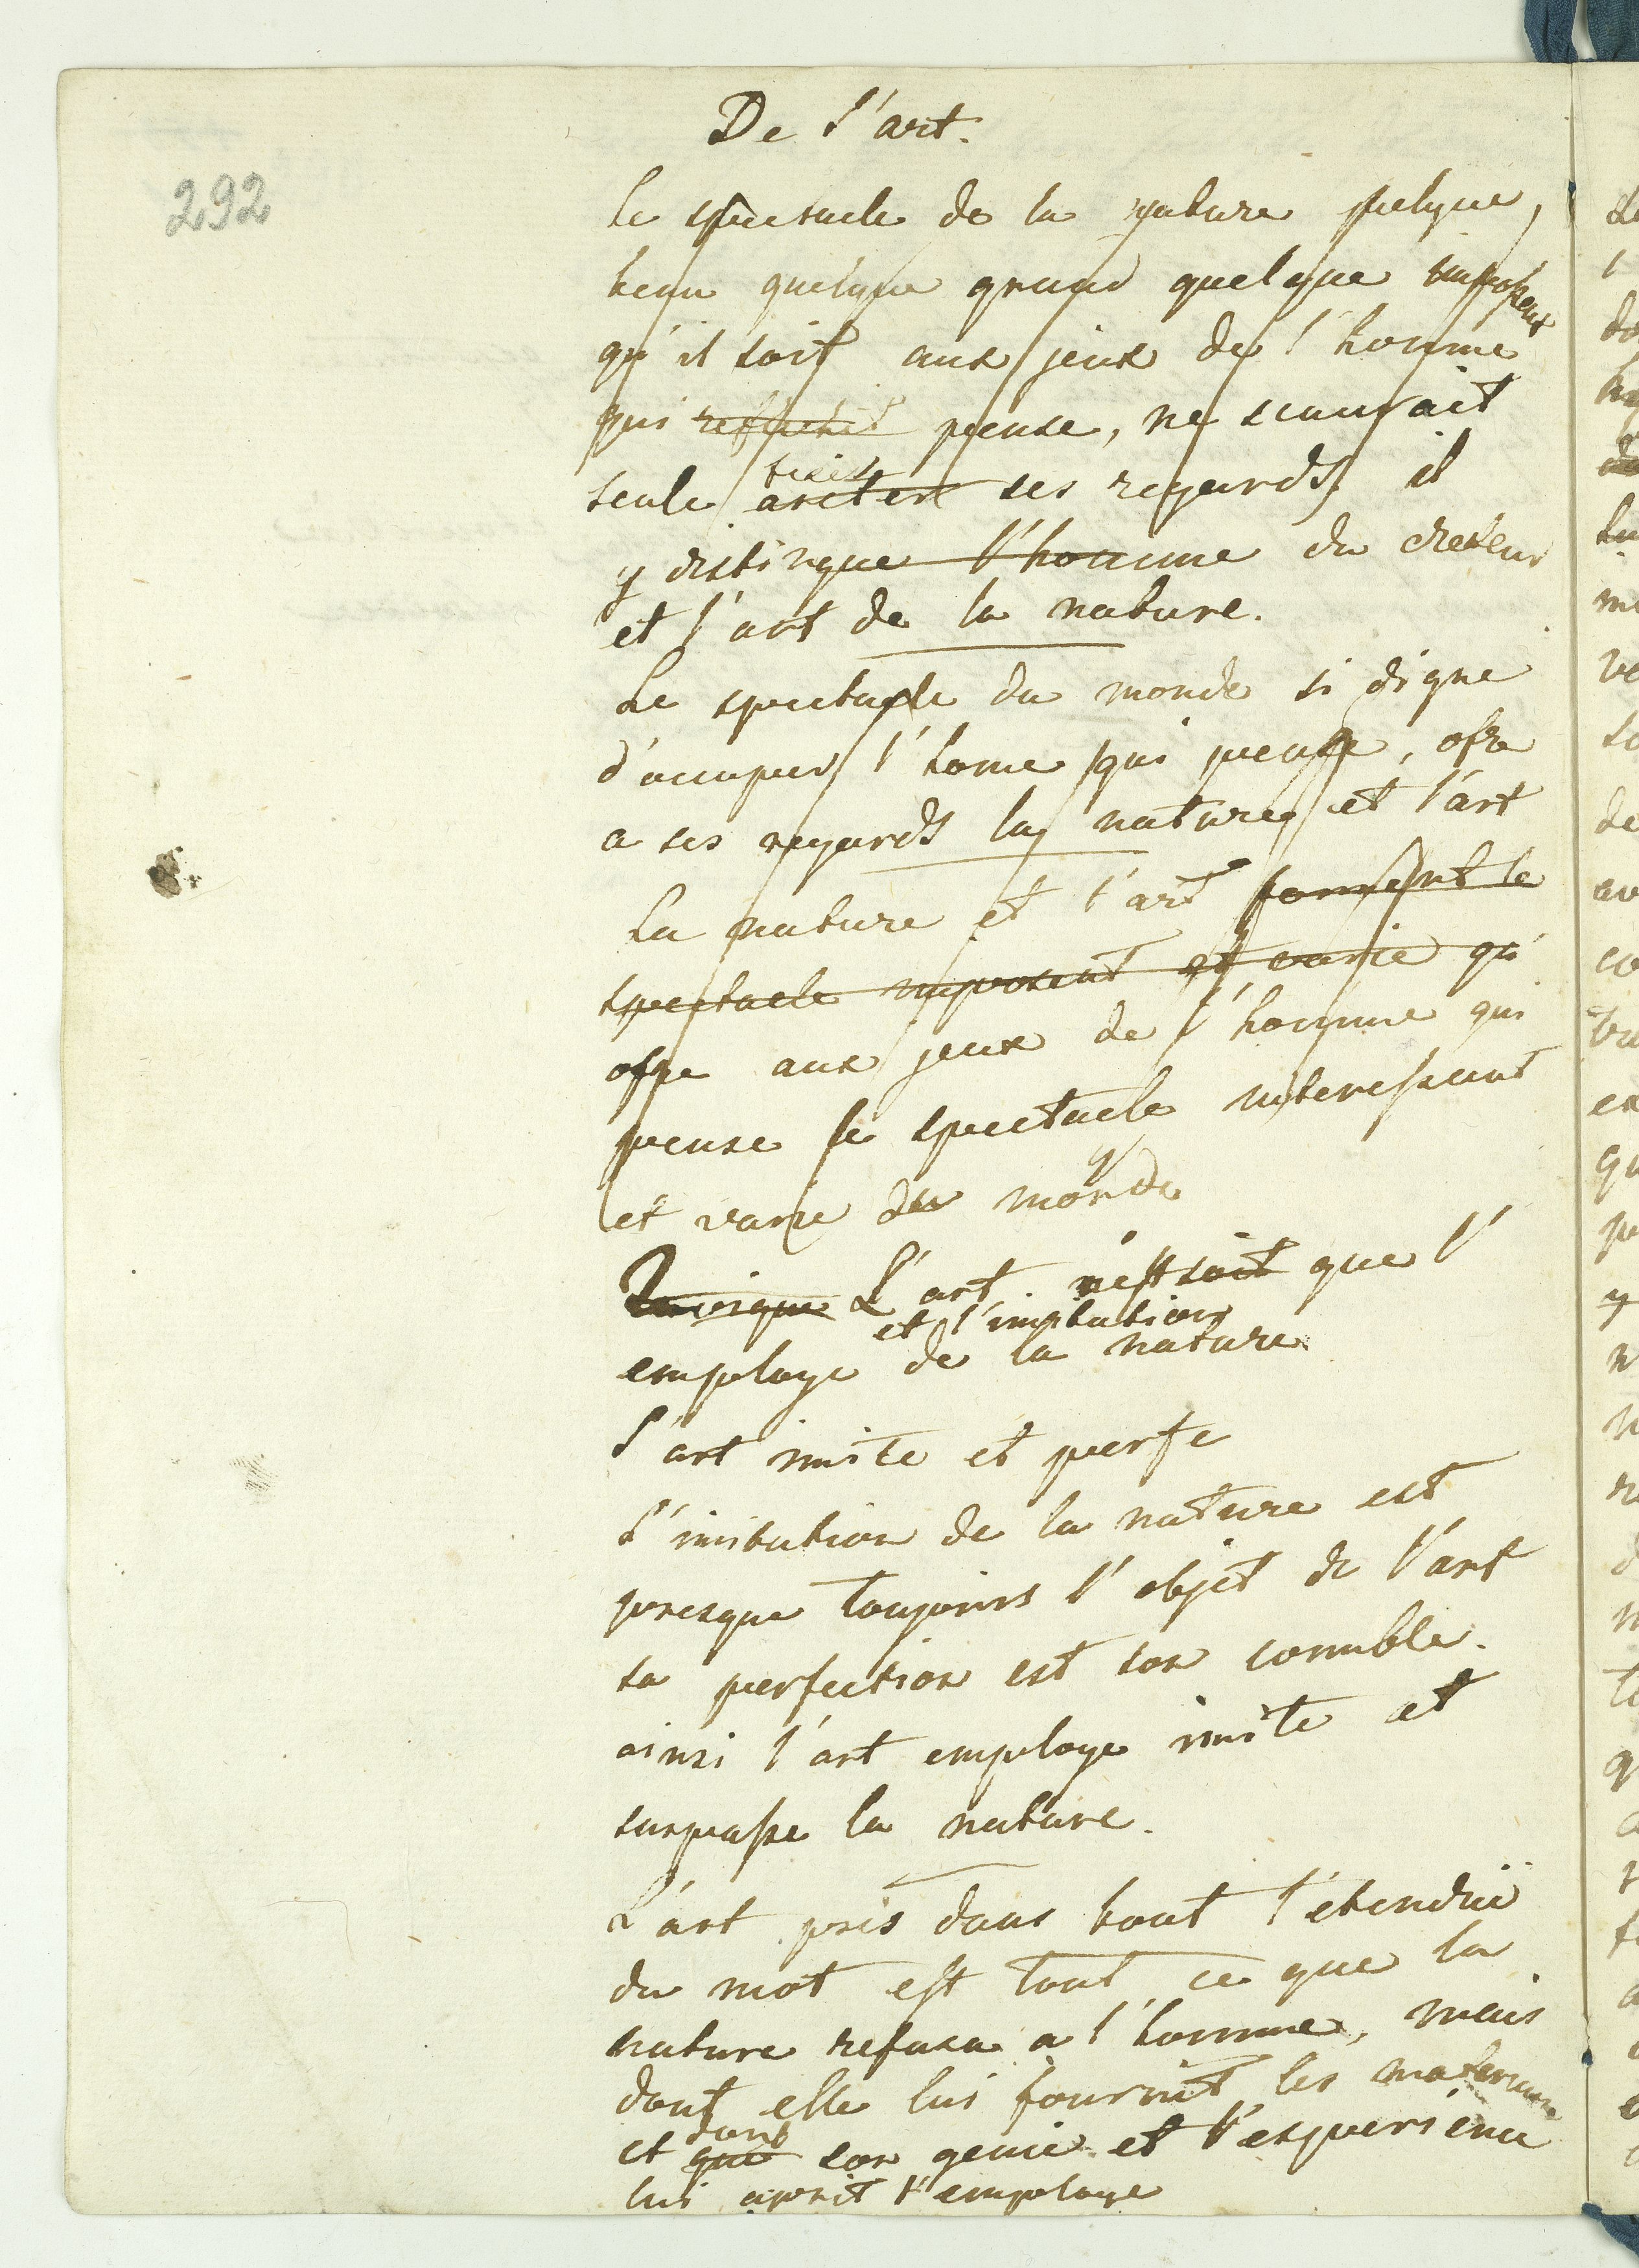 De l'art.
292
Le spectacle de la nature quelque,
beau quelque grand quelque imposant
qu'il soit aux jeux de l'homme
qui reflechit pense, ne scaurait
fixer
seule areter ses regards il
y distingue l'homme du createur
et l'art de la nature.
Le spectacle du monde si digne
d'occuper l'home qui pense, ofre
a ses regards la nature et l'art
La nature et l'art forment le
spectacle imposant et varie qu'
offre aux jeux de l'homme qui
pense le spectacle interessant
et varie du monde
Quoique L'art n'est soit que l'
et l'imitation
employe de la nature
L'art imite et perfe
L'imitation de la nature est
presque toujours l'objet de l'art
sa perfection est son comble.
ainsi l'art employe imite et
surpasse la nature.
L'art pris dans tout l'etendüe
du mot est tout ce que la
nature refusa a l'homme, mais
dont elle lui fournit les materiaux
dont
et que son genie et l'experience
lui aprit l'employe